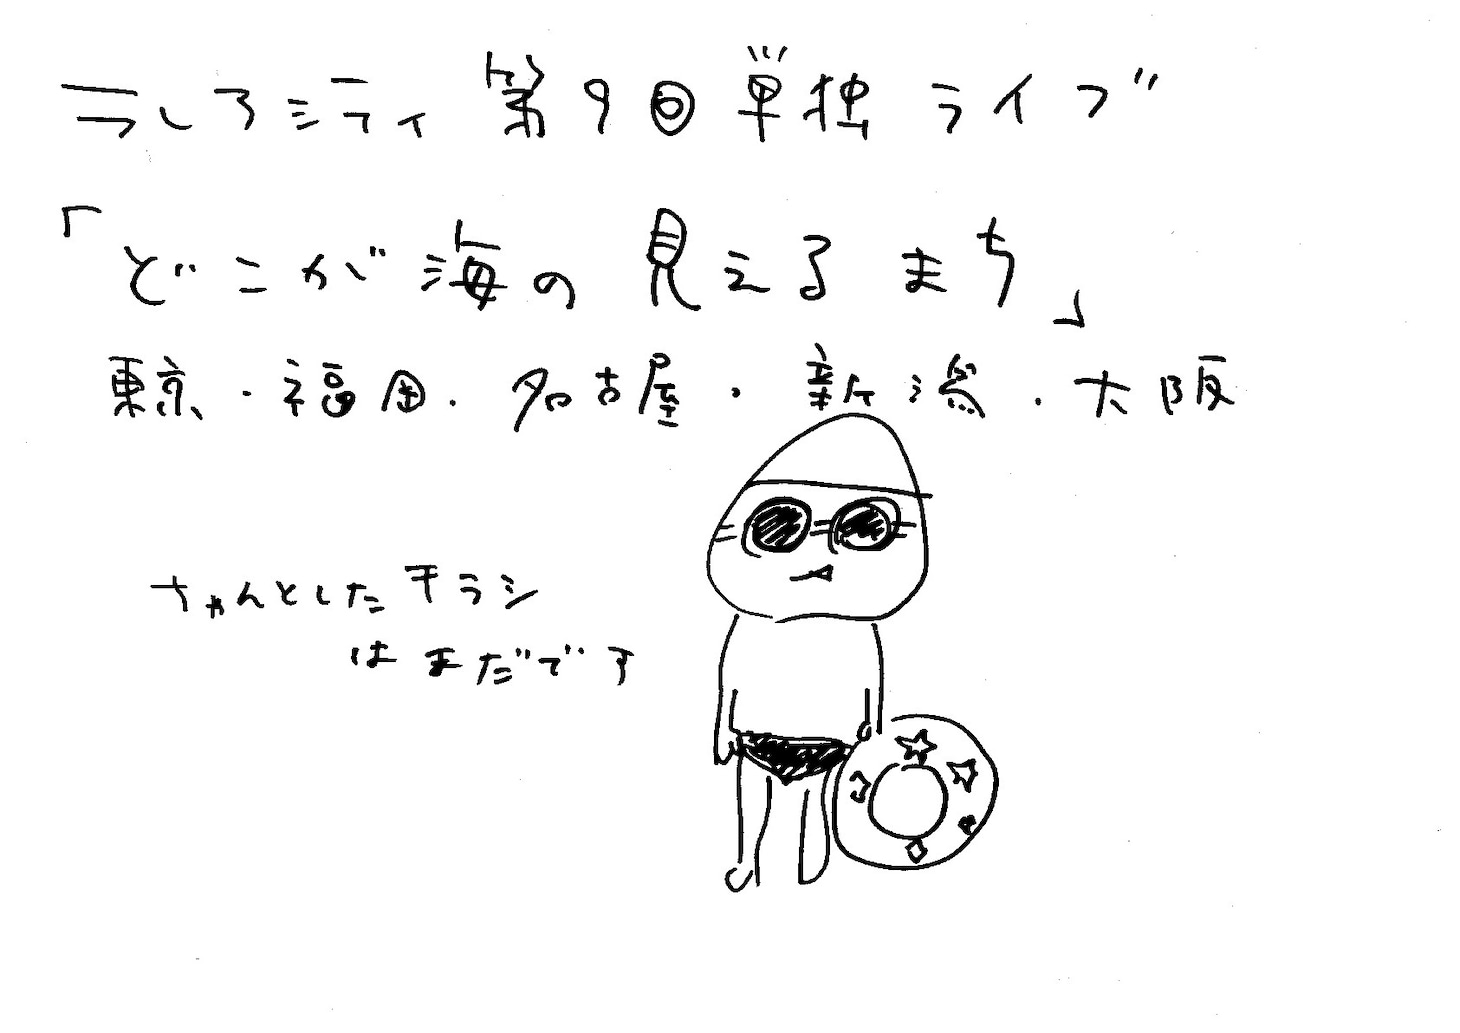 うしろシティ 第9回単独ライブ
「どこが海の見えるまち」
東京・福岡・名古屋・新潟・大阪
ちゃんとしたチラシ
はまだです